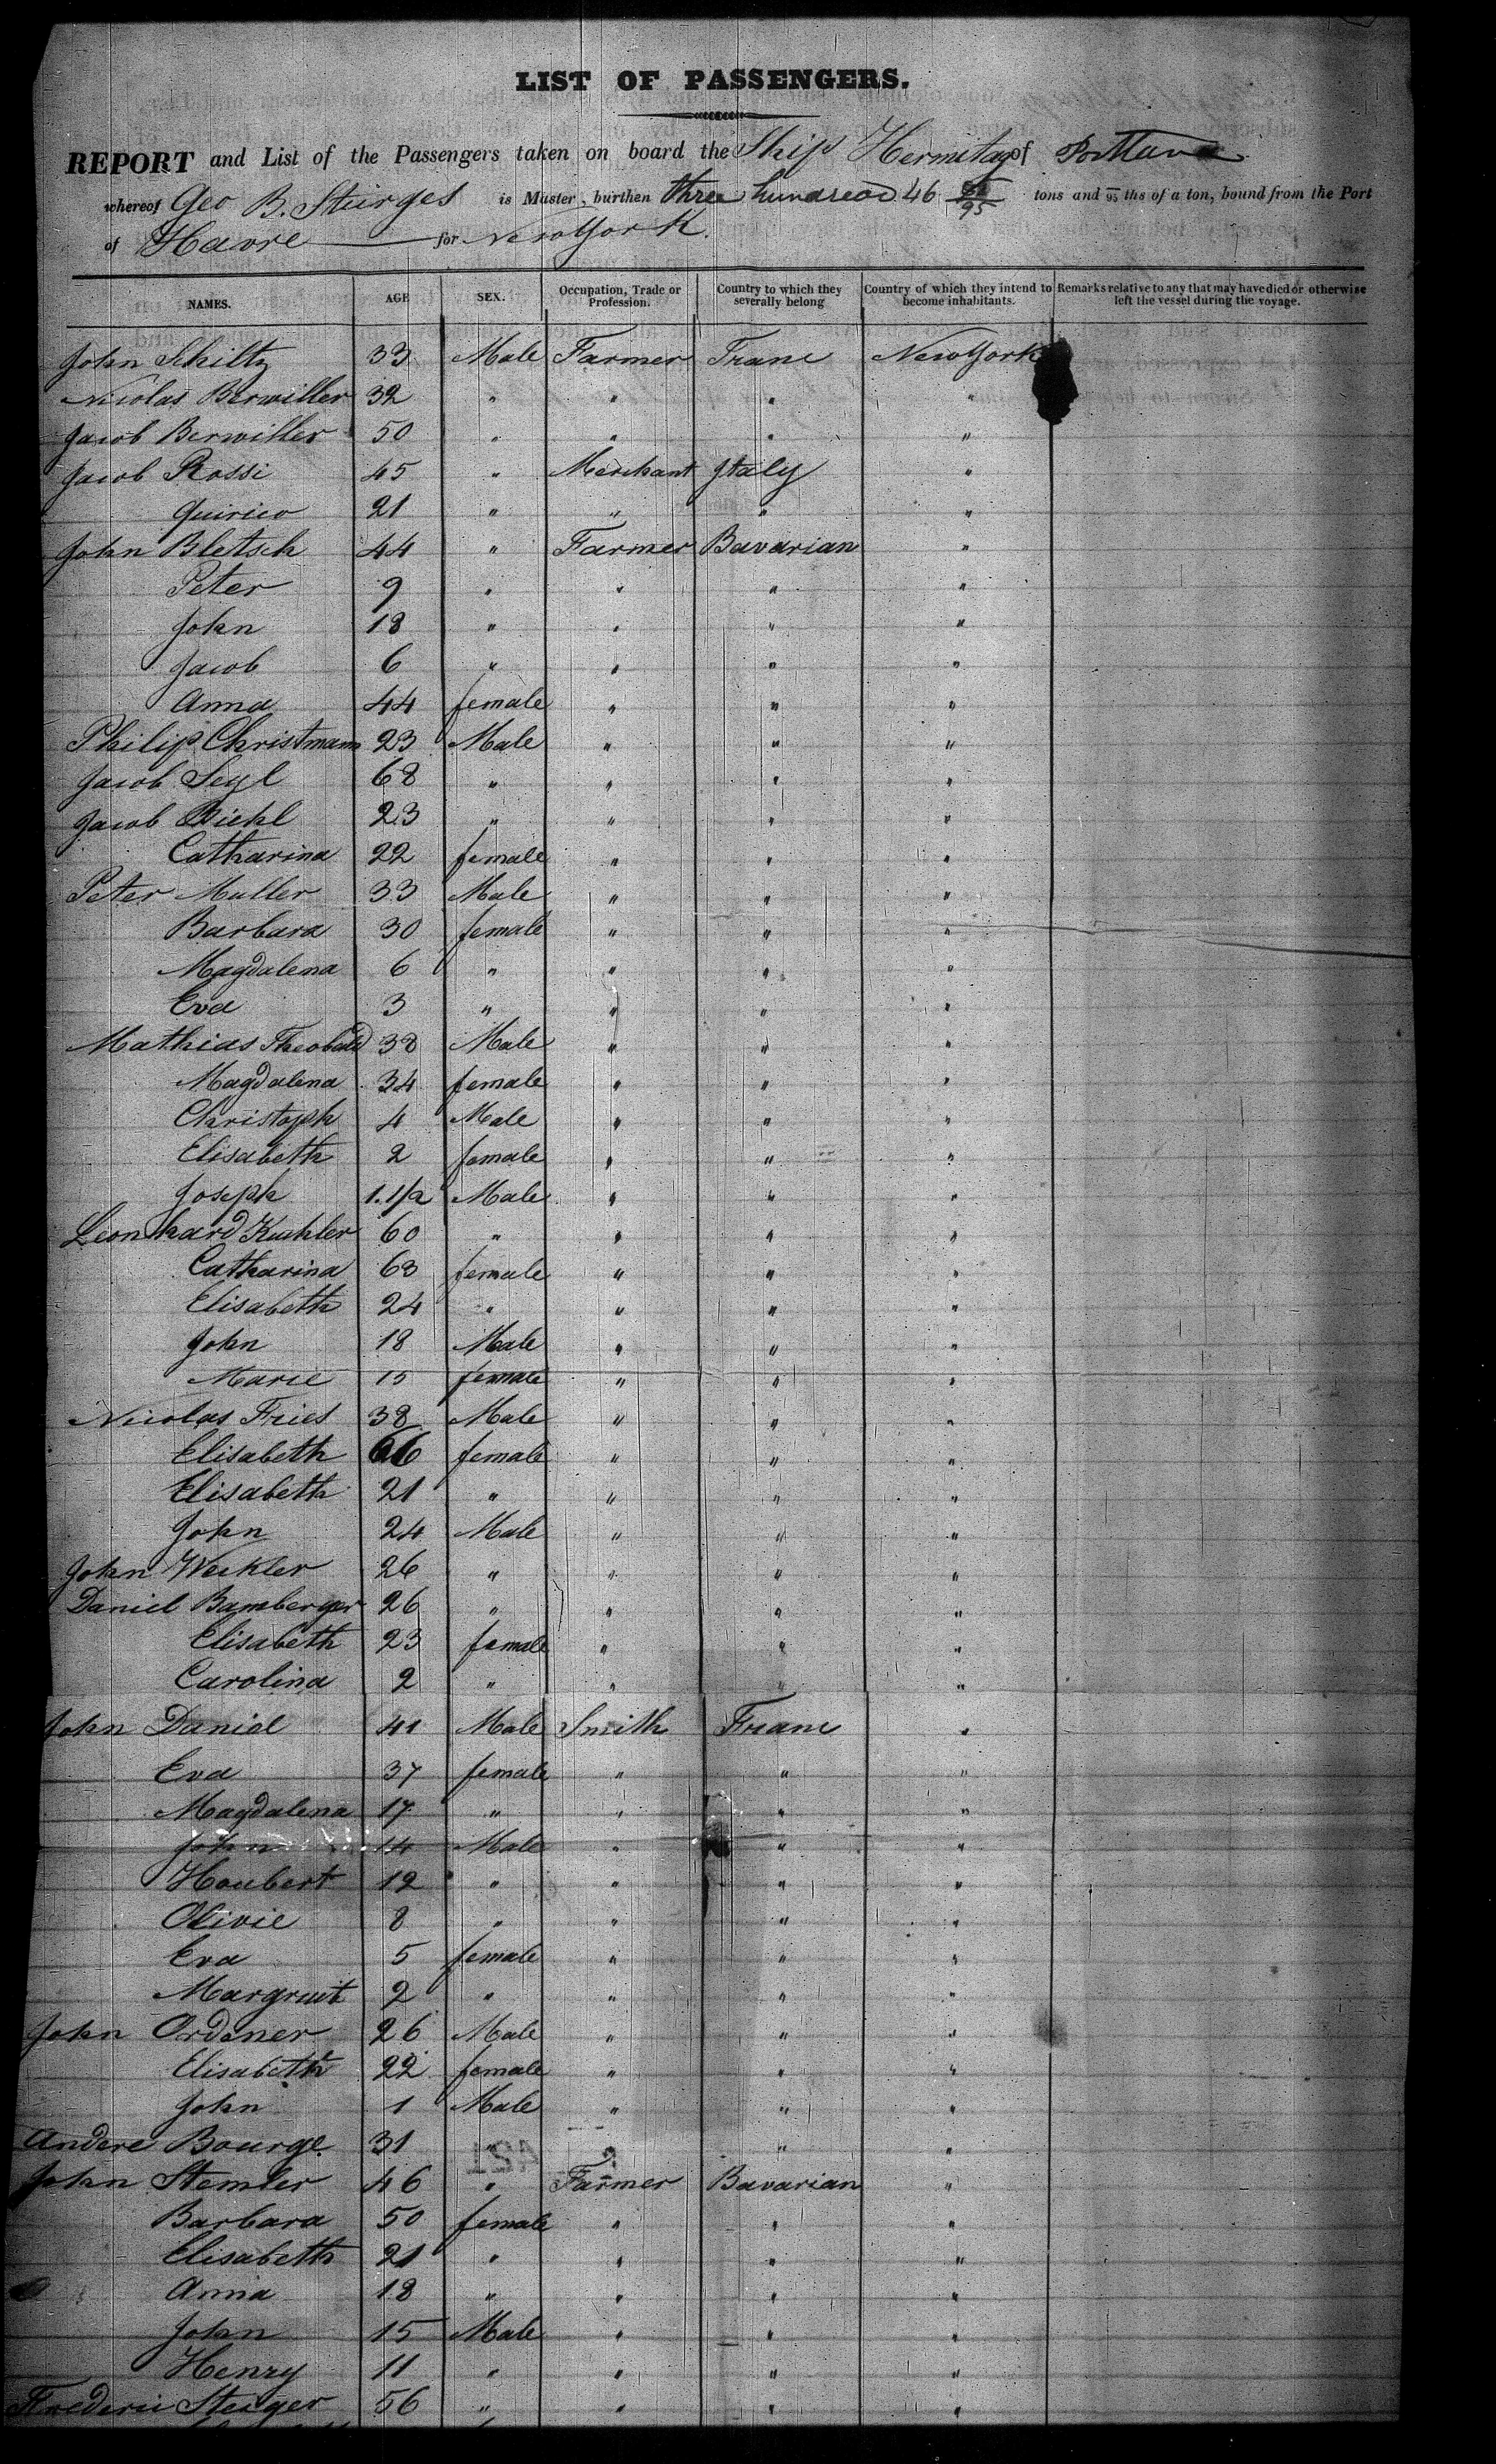 LIST OF PASSENGERS.
REPORT and List of the Passengers taken on board the Ship Hermitag of Portland
whereof Geo B. Sturges is Master, burthen three hundread 46 /95 tons and 95 ths of a ton, bound from the Port
of Havre for New York.
NAMES. AGE SEX. Occupation, Trade or Profession. Country to which they severally belong Country of which they intend to become inhabitants. Remarks relative to any that may have died or otherwise left the vessel during the voyage.
John Schiltz 33 Male Farmer Franc New York
Nicolas Berwiller 32 " " " "
Jacob Berwiller 50 " " " "
Jacob Rossi 45 " Merchant Italy "
Quirico 21 " " " "
John Bletsch 44 " Farmer Bavarian "
Peter 9 " " " "
John 18 " " " "
Jacob 6 " " " "
Anna 44 female " " "
Philip Christmann 23 Male " " "
Jacob Seyl 68 " " " "
Jacob Diehl 23 " " " "
Catharina 22 female " " "
Peter Muller 33 Male " " "
Barbara 30 female " " "
Magdalena 6 " " " "
Eva 3 " " " "
Mathias Theobald 38 Male " " "
Magdalena 34 female " " "
Christoph 4 Male " " "
Elisabeth 2 female " " "
Joseph 1.1/2 Male " " "
Leonhard Kuhler 60 " " " "
Catharina 63 female " " "
Elisabeth 24 " " " "
John 18 Male " " "
Marie 15 female " " "
Nicolas Fries 38 Male " " "
Elisabeth 66 female " " "
Elisabeth 21 " " " "
John 24 Male " " "
John Weckler 26 " " " "
Daniel Bamberger 26 " " " "
Elisabeth 23 female " " "
Carolina 2 " " " "
John Daniel 41 Male Smith Franc "
Eva 37 female " " "
Magdalena 17 " " " "
John 14 Male " " "
Houbert 12 " " " "
Olivie 8 " " " "
Eva 5 female " " "
Margruit 2 " " " "
John Ordener 26 Male " " "
Elisabeth 22 female " " "
John 1 Male " " "
Andere Bourge 31 " " " "
John Stemler 46 " Farmer Bavarian "
Barbara 50 female " " "
Elisabeth 21 " " " "
Anna 18 " " " "
John 15 Male " " "
Henry 11 " " " "
Frederic Steiger 56 " " " "